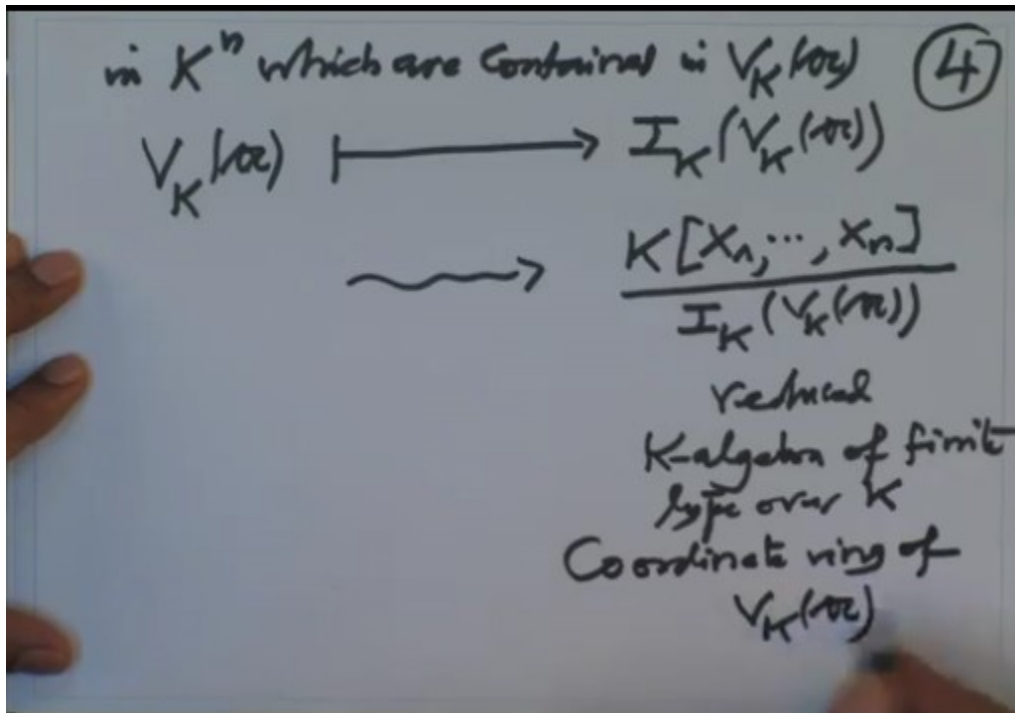 in Kⁿ which are contained in V_K(𝔞) ④
V_K(𝔞) ⟼ I_K(V_K(𝔞))
⇝ K[X₁, ..., Xₙ]
I_K(V_K(𝔞))
reduced
K-algebra of finite
type over K
Coordinate ring of
V_K(𝔞)